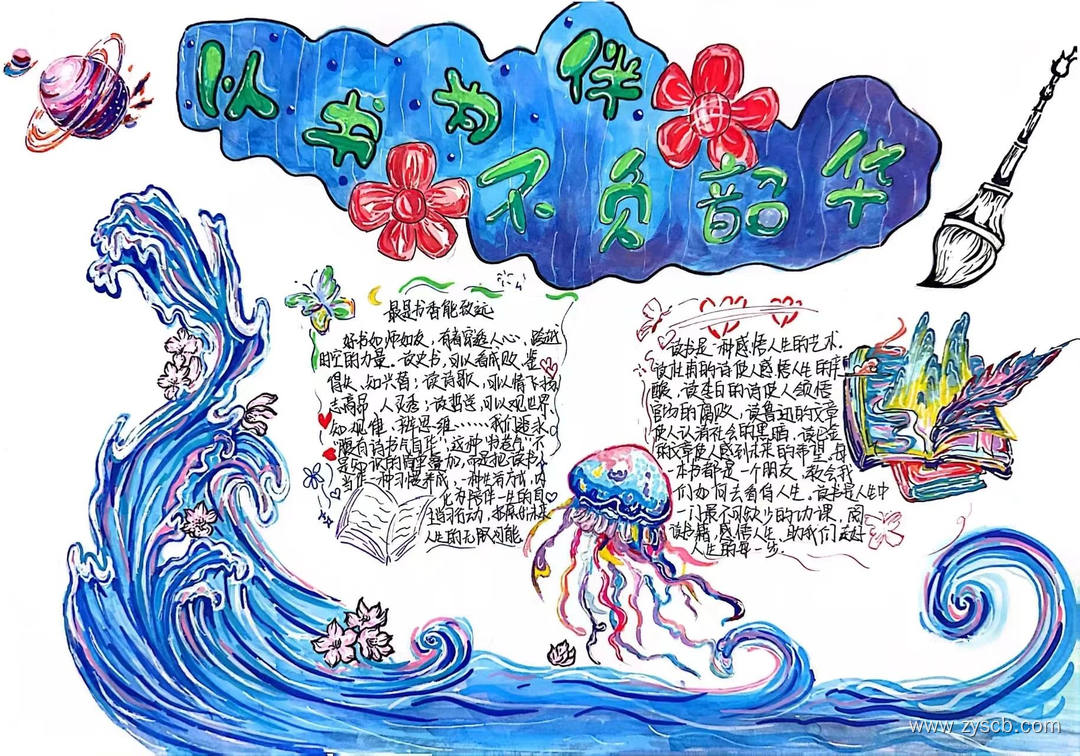 以书为伴
不负韶华
最是书香能致远
好书如师如友，有着穿透人心，跨越
时空的力量。读史书，可以看成败、鉴
得失、知兴替；读诗歌，可以情飞扬
志高昂、人灵秀；读哲学，可以观世界、
知规律、辨思维……我们追求
"腹有诗书气自华"，这种"书卷气"不
是知识的简单叠加，而是把读书
当作一种习惯养成，一种生活方式，内
化为陪伴一生的自
主的行动，拓展未来
人生的无限可能。
读书是一种感悟人生的艺术。
读杜甫的诗使人感悟人生的辛
酸，读李白的诗使人领悟
官场的腐败，读鲁迅的文章
使人认清社会的黑暗，读巴金
的文章使人感到未来的希望，每
一本书都是一个朋友，教会我
们如何去看待人生。读书是人生中
一门最不可缺少的功课，阅
读书籍，感悟人生，助我们走好
人生的每一步。
www.zyscb.com